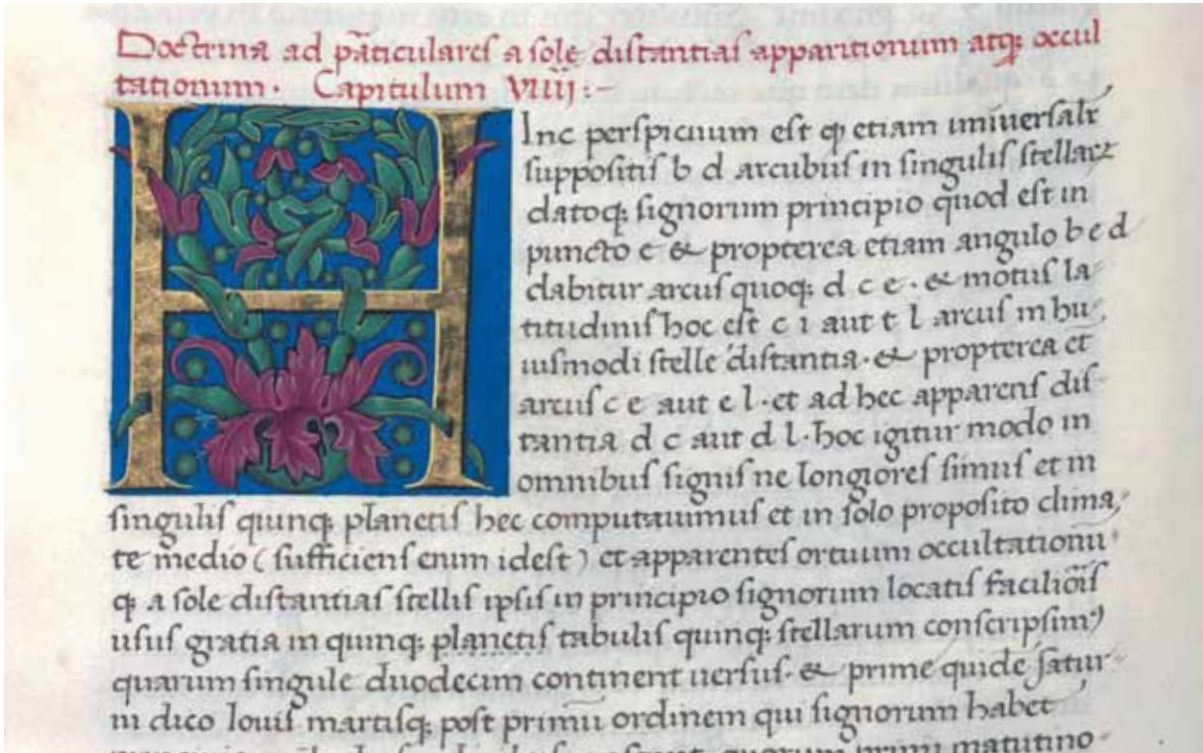 Doctrina ad p̄ticulares a sole distantias apparitionum atq; occul
tationum. Capitulum VIIIJ:-
HInc perspicuum est ꝙ etiam uniuersalr̄
suppositis b d arcubus in singulis stellaꝝ
datoq; signorum principio quod est in
puncto e & propterea etiam angulo b e d
dabitur arcus quoq; d c e. & motus la-
titudinis hoc est c i aut t l arcus in hu,
iusmodi stelle distantia. & propterea et
arcus c e aut e l. et ad hec apparens dis-
tantia d c aut d l. hoc igitur modo in
omnibus signis ne longiores simus et in
singulis quinq; planetis hec computauimus et in solo proposito clima,
te medio ( sufficiens enim idest ) et apparentes ortuum occultationū
q; a sole distantias stellis ipsis in principio signorum locatis
usus gratia in quinq; planetis tabulis quinq; stellarum conscripsimꝰ
quarum singule duodecim continent uersus. & prime quidē satur-
ni dico Iouis martisq; post primū ordinem qui signorum habet
quorum primi matutino